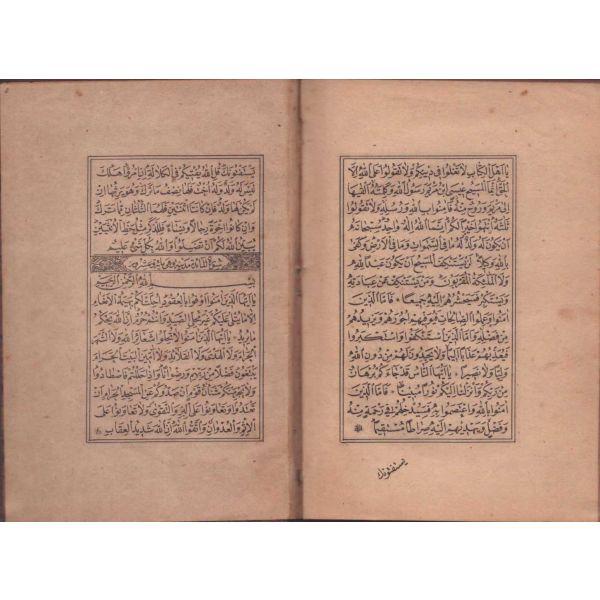 يَا اَهْلَ الْكِتَابِ لَا تَغْلُوا فِي دِينِكُمْ وَلَا تَقُولُوا عَلَى اللهِ اِلَّا
الْحَقَّ اِنَّمَا الْمَسِيحُ عِيسَى ابْنُ مَرْيَمَ رَسُولُ اللهِ وَكَلِمَتُهُ اَلْقٰيهَا
اِلٰى مَرْيَمَ وَرُوحٌ مِنْهُ فَاٰمِنُوا بِاللهِ وَرُسُلِهِ وَلَا تَقُولُوا
ثَلٰثَةٌ اِنْتَهُوا خَيْرًا لَكُمْ اِنَّمَا اللهُ اِلٰهٌ وَاحِدٌ سُبْحَانَهُ
اَنْ يَكُونَ لَهُ وَلَدٌ لَهُ مَا فِي السَّمٰوَاتِ وَمَا فِي الْاَرْضِ وَكَفٰى
بِاللهِ وَكِيلًا لَنْ يَسْتَنْكِفَ الْمَسِيحُ اَنْ يَكُونَ عَبْدًا لِلّٰهِ
وَلَا الْمَلٰئِكَةُ الْمُقَرَّبُونَ وَمَنْ يَسْتَنْكِفْ عَنْ عِبَادَتِهِ
وَيَسْتَكْبِرْ فَسَيَحْشُرُهُمْ اِلَيْهِ جَمِيعًا فَاَمَّا الَّذِينَ
اٰمَنُوا وَعَمِلُوا الصَّالِحَاتِ فَيُوَفِّيهِمْ اُجُورَهُمْ وَيَزِيدُهُمْ
مِنْ فَضْلِهِ وَاَمَّا الَّذِينَ اسْتَنْكَفُوا وَاسْتَكْبَرُوا
فَيُعَذِّبُهُمْ عَذَابًا اَلِيمًا وَلَا يَجِدُونَ لَهُمْ مِنْ دُونِ اللهِ
وَلِيًّا وَلَا نَصِيرًا يَا اَيُّهَا النَّاسُ قَدْ جَاءَكُمْ بُرْهَانٌ
مِنْ رَبِّكُمْ وَاَنْزَلْنَا اِلَيْكُمْ نُورًا مُبِينًا فَاَمَّا الَّذِينَ
اٰمَنُوا بِاللهِ وَاعْتَصَمُوا بِهِ فَسَيُدْخِلُهُمْ فِي رَحْمَةٍ مِنْهُ
وَفَضْلٍ وَيَهْدِيهِمْ اِلَيْهِ صِرَاطًا مُسْتَقِيمًا
يستفتونك
يَسْتَفْتُونَكَ قُلِ اللهُ يُفْتِيكُمْ فِي الْكَلَالَةِ اِنِ امْرُؤٌا هَلَكَ
لَيْسَ لَهُ وَلَدٌ وَلَهُ اُخْتٌ فَلَهَا نِصْفُ مَا تَرَكَ وَهُوَ يَرِثُهَا اِنْ
لَمْ يَكُنْ لَهَا وَلَدٌ فَاِنْ كَانَتَا اثْنَتَيْنِ فَلَهُمَا الثُّلُثَانِ مِمَّا تَرَكَ
وَاِنْ كَانُوا اِخْوَةً رِجَالًا وَنِسَاءً فَلِلذَّكَرِ مِثْلُ حَظِّ الْاُنْثَيَيْنِ
يُبَيِّنُ اللهُ لَكُمْ اَنْ تَضِلُّوا وَاللهُ بِكُلِّ شَيْءٍ عَلِيمٌ
سورة المائدة مدنية وهي مائة وعشرون
بِسْمِ اللهِ الرَّحْمٰنِ الرَّحِيمِ
يَا اَيُّهَا الَّذِينَ اٰمَنُوا اَوْفُوا بِالْعُقُودِ اُحِلَّتْ لَكُمْ بَهِيمَةُ الْاَنْعَامِ
اِلَّا مَا يُتْلٰى عَلَيْكُمْ غَيْرَ مُحِلِّي الصَّيْدِ وَاَنْتُمْ حُرُمٌ اِنَّ اللهَ يَحْكُمُ
مَا يُرِيدُ يَا اَيُّهَا الَّذِينَ اٰمَنُوا لَا تُحِلُّوا شَعَائِرَ اللهِ وَلَا الشَّهْرَ
الْحَرَامَ وَلَا الْهَدْيَ وَلَا الْقَلَائِدَ وَلَا اٰمِّينَ الْبَيْتَ الْحَرَامَ
يَبْتَغُونَ فَضْلًا مِنْ رَبِّهِمْ وَرِضْوَانًا وَاِذَا حَلَلْتُمْ فَاصْطَادُوا
وَلَا يَجْرِمَنَّكُمْ شَنَاٰنُ قَوْمٍ اَنْ صَدُّوكُمْ عَنِ الْمَسْجِدِ الْحَرَامِ اَنْ
تَعْتَدُوا وَتَعَاوَنُوا عَلَى الْبِرِّ وَالتَّقْوٰى وَلَا تَعَاوَنُوا عَلَى
الْاِثْمِ وَالْعُدْوَانِ وَاتَّقُوا اللهَ اِنَّ اللهَ شَدِيدُ الْعِقَابِ